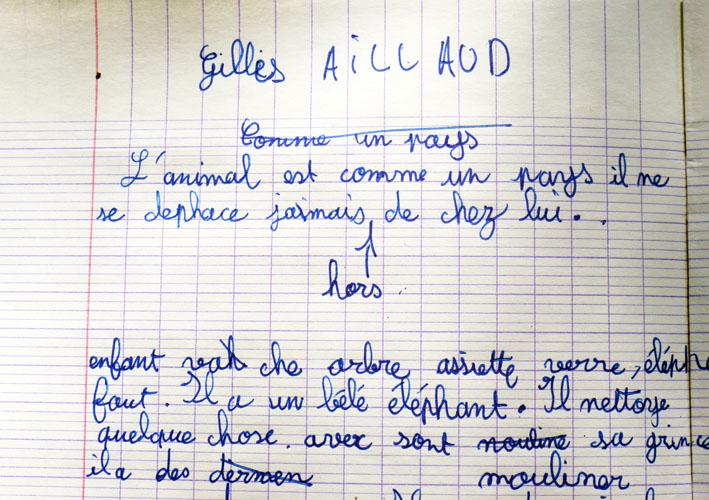 Gilles AiLLAUD
Comme un pays
L'animal est comme un pays il ne
se dephace jaimais de chez lui..
hors
enfant vah che arbre assiette verre, éléph
faut. Il a un bélé éléphant. Il nettoye
quelque chose. avex sont sa grince
il a des
mouliner